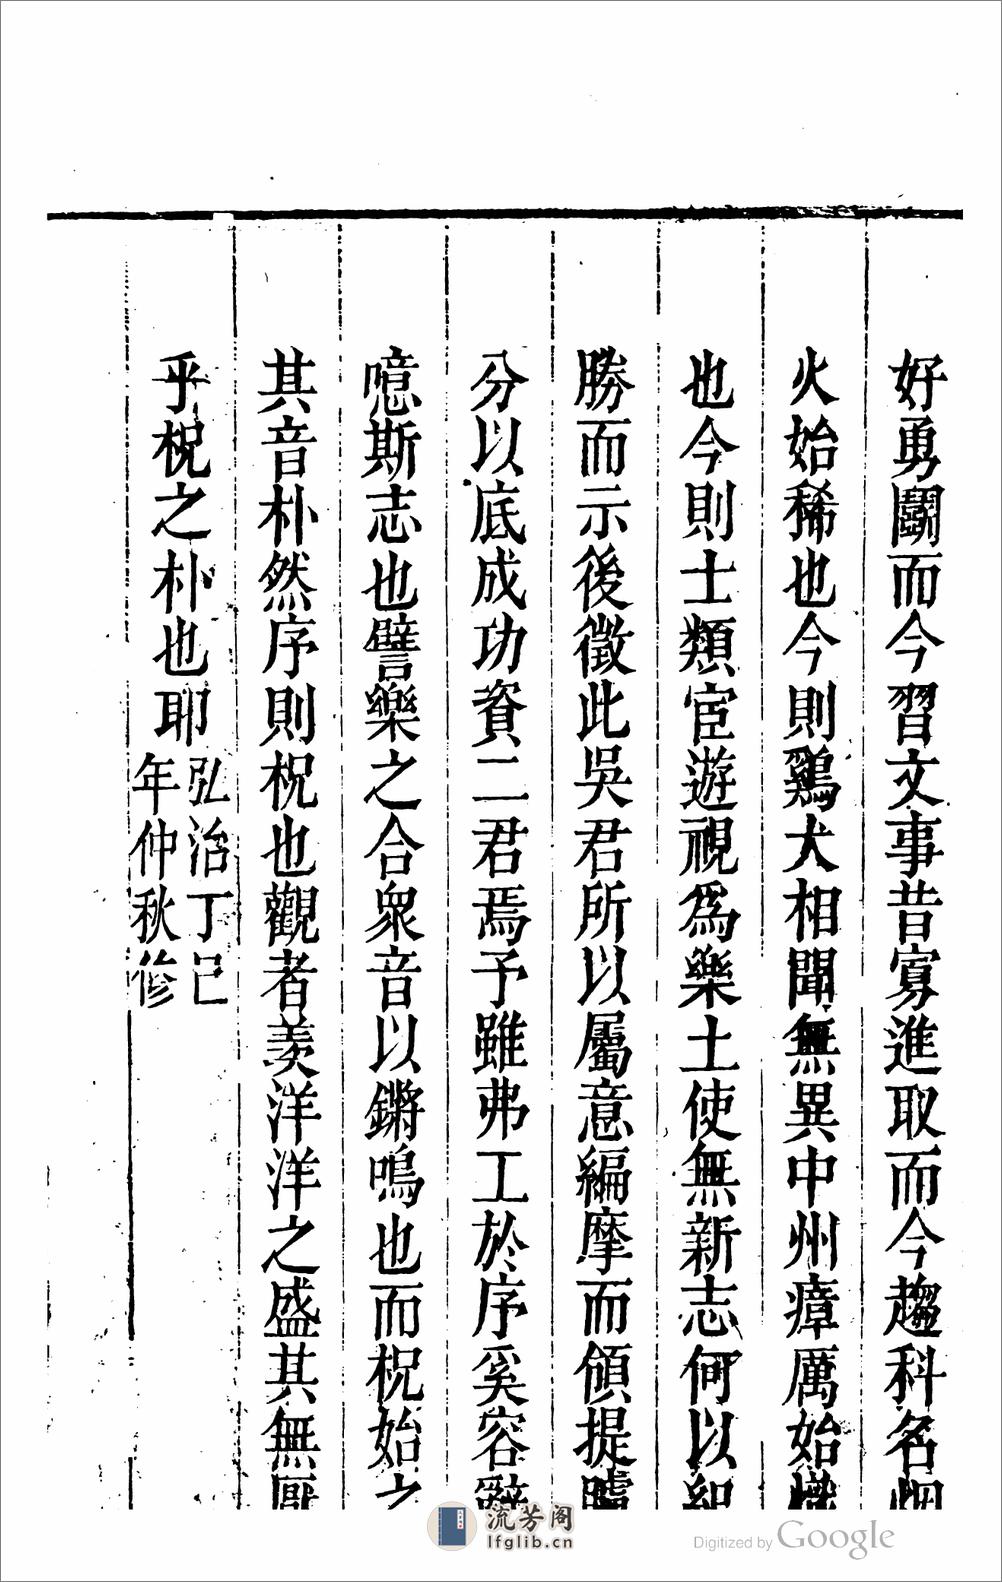 好勇鬭而今習文事昔寡進取而今趨科名烟
火始稀也今則鷄犬相聞無異中州瘴厲始熾
也今則士類宦遊視爲樂土使無新志何以紀
勝而示後徵此吳君所以屬意編摩而頒提
分以底成功資二君焉予雖弗工於序奚容辭
噫斯志也譬樂之合衆音以鏘鳴也而柷始之
其音朴然序則柷也觀者羙洋洋之盛其無厭
乎柷之朴也耶
弘治丁巳
年仲秋修
流芳阁
lfglib.cn
Digitized by Google